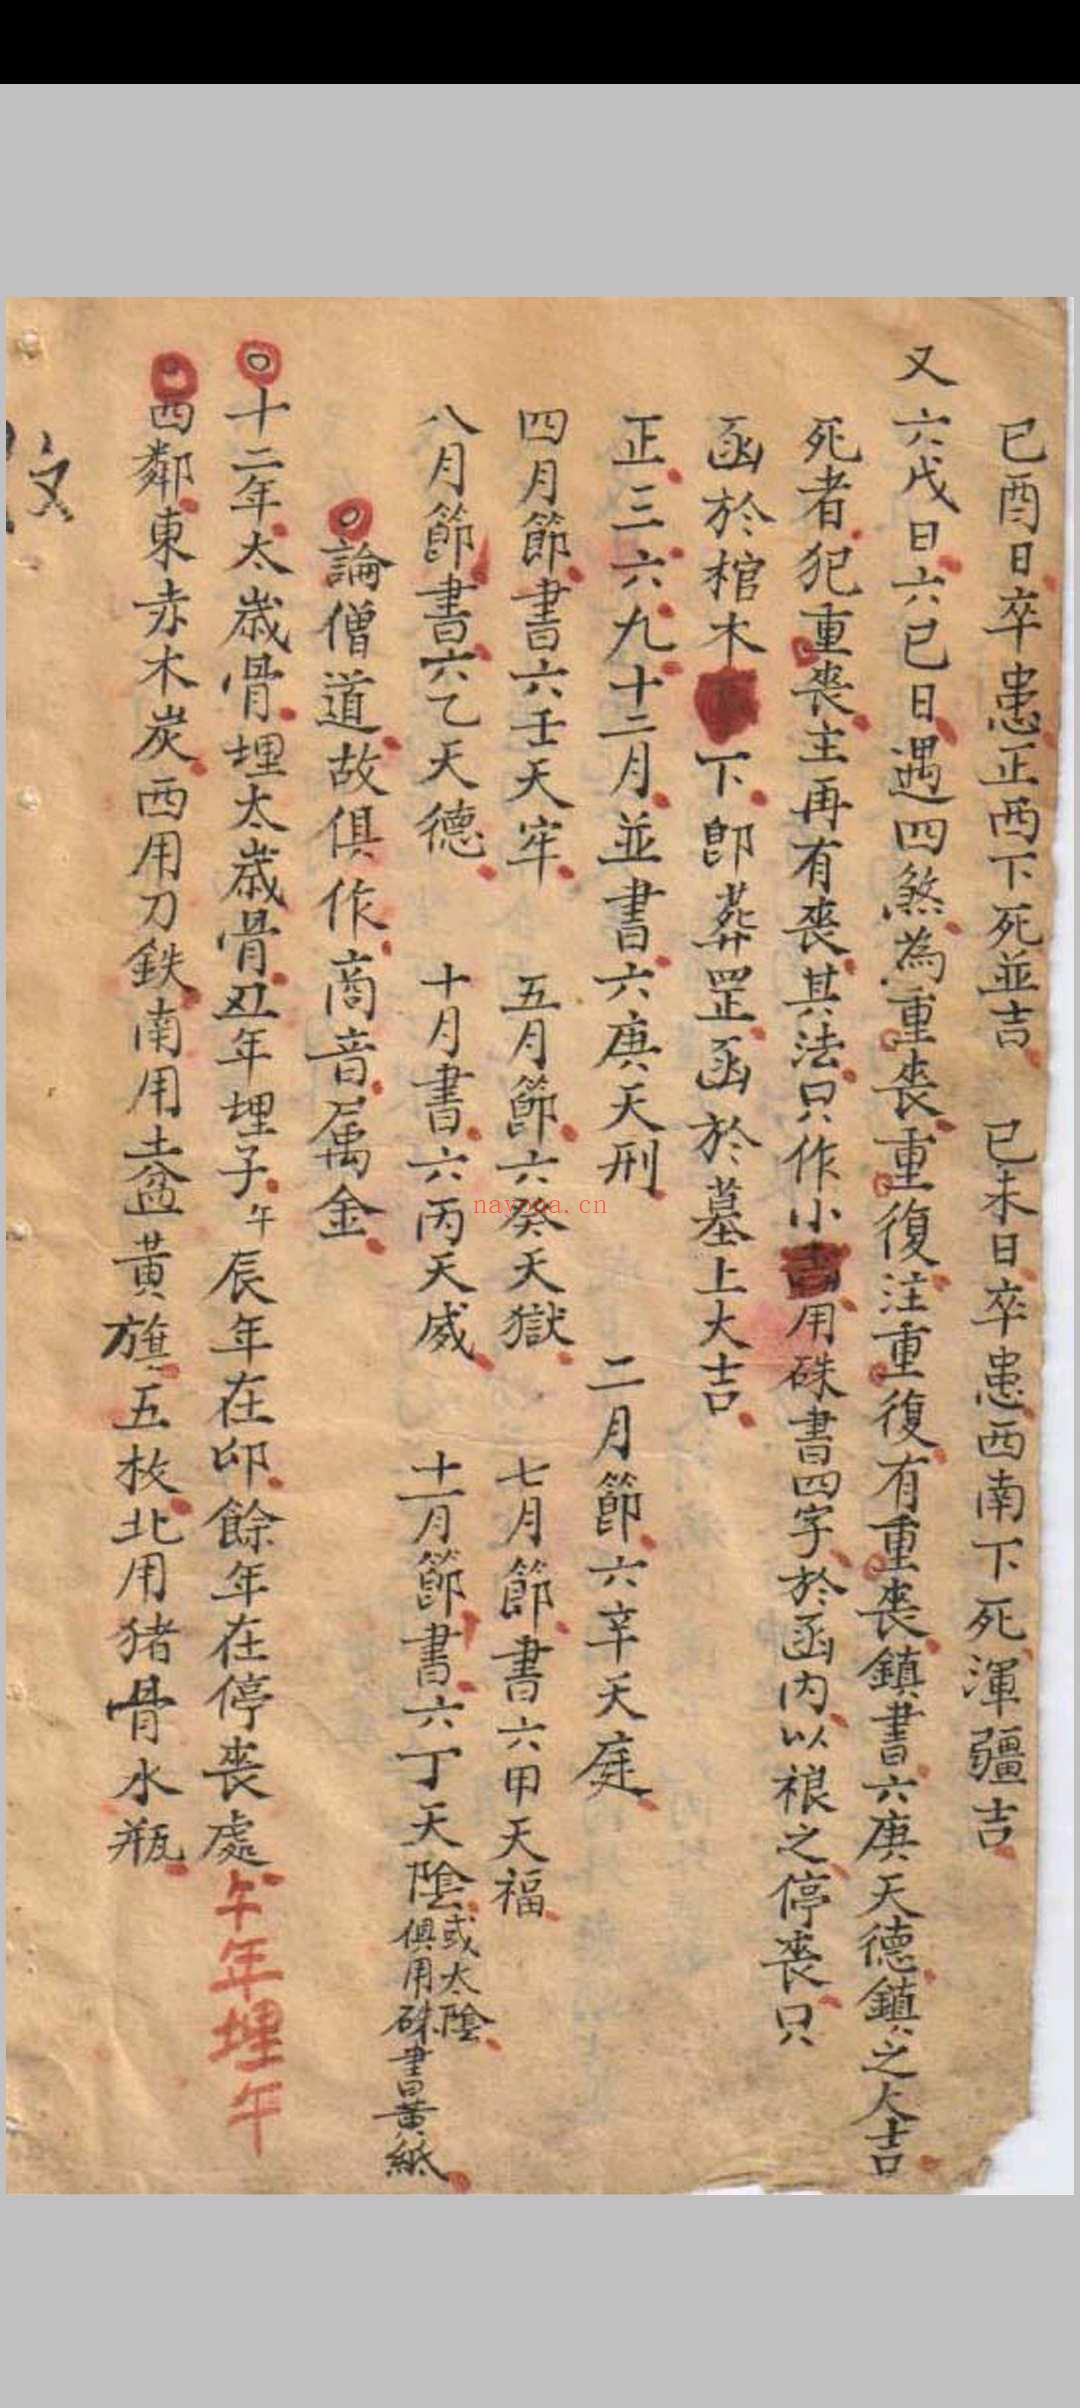 己酉日卒患正西下死並吉　己未日卒患西南下死渾疆吉
又六戊日六己日遇四煞為重喪重復注重復有重喪鎮書六庚天德鎮之大吉
死者犯重喪主再有喪其法只作小用硃書四字於函內以裉之停喪只
函於棺木下卽葬罡函於墓上大吉
正三六九十二月並書六庚天刑　二月節六辛天庭
四月節書六壬天牢　五月節六癸天獄　七月節書六甲天福
八月節書六乙天德　十月書六丙天威　十一月節書六丁天陰或太陰俱用硃書黃紙
論僧道故俱作商音属金
十二年太歲骨埋太歲骨丑年埋子午辰年在卯餘年在停喪處午年埋午
四鄰東赤木炭西用刀鉄南用土盆黃旗五枚北用猪骨水瓶
nayona.cn